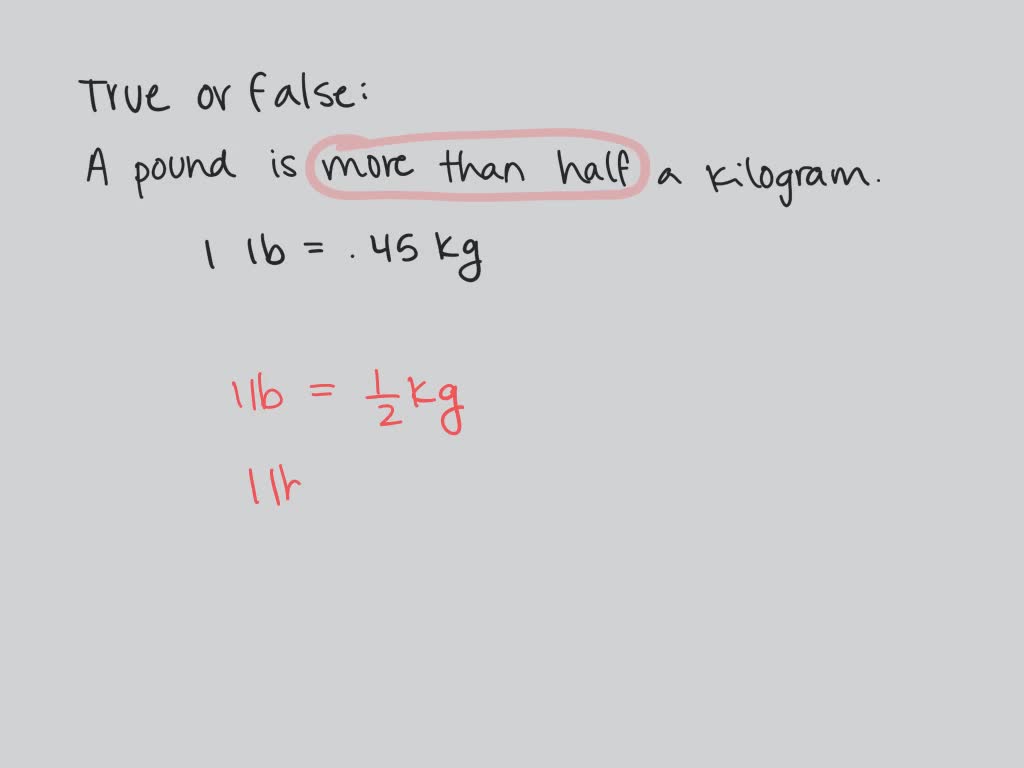 True or false:
A pound is more than half a kilogram.
1 lb = .45 kg
1 lb = 1/2 kg
1 lh